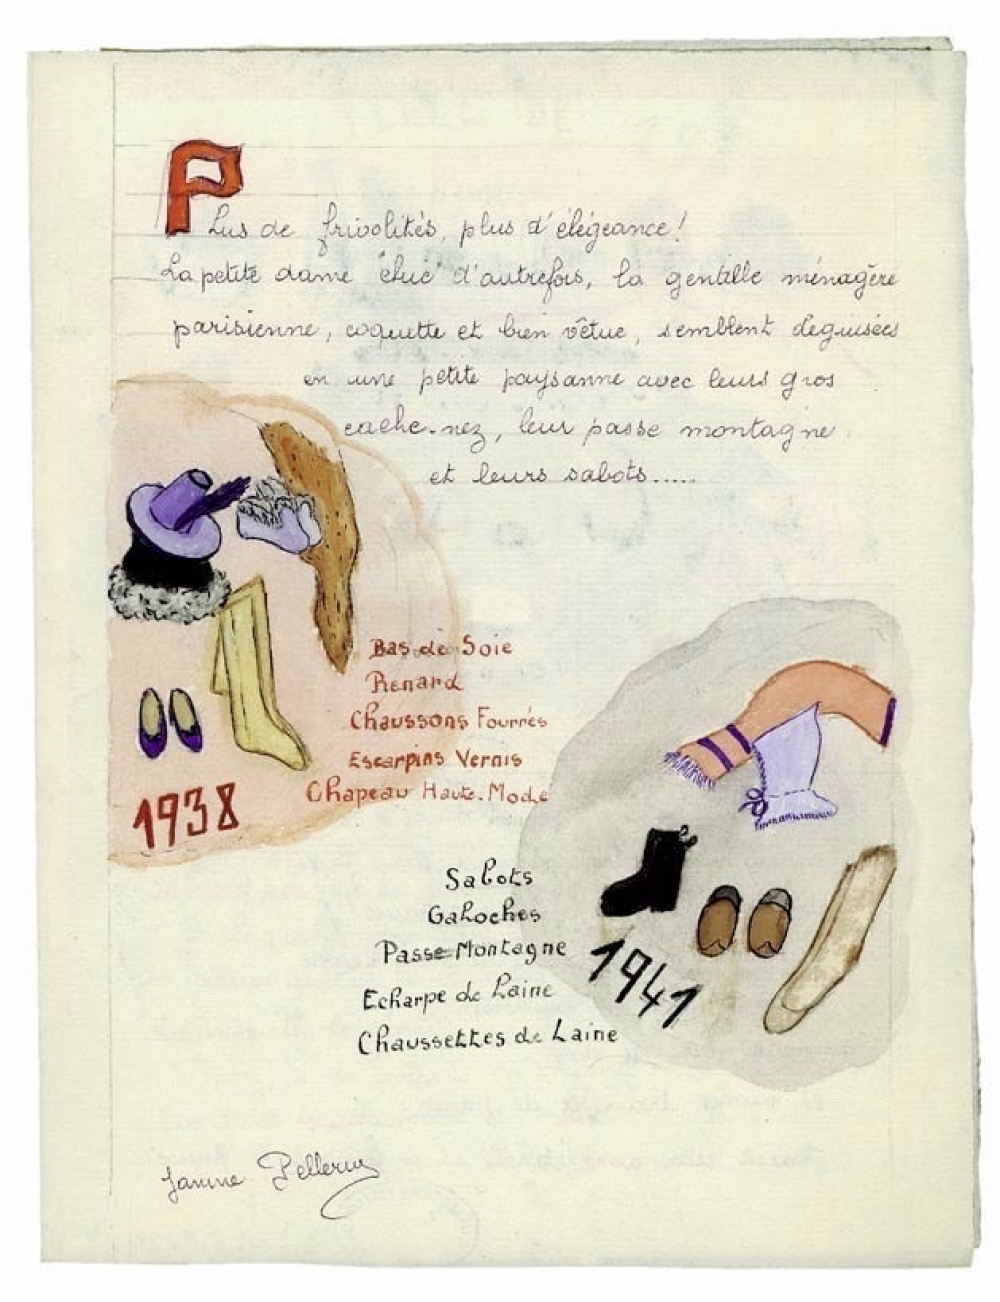 Plus de frivolités, plus d'élégeance!
La petite dame "chic" d'autrefois, la gentille ménagère
parisienne, coquette et bien vêtue, semblent deguisées
en une petite paysanne avec leurs gros
cache-nez, leur passe montagne
et leurs sabots.....
Bas de Soie
Renard
Chaussons Fourrés
Escarpins Vernis
Chapeau Haute-Mode
1938
Sabots
Galoches
Passe-Montagne
Echarpe de Laine
Chaussettes de Laine
1941
Janine Pellerin